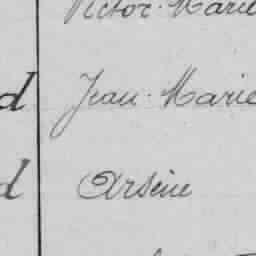 Victor-Marie
d Jean-Marie
d Arsène